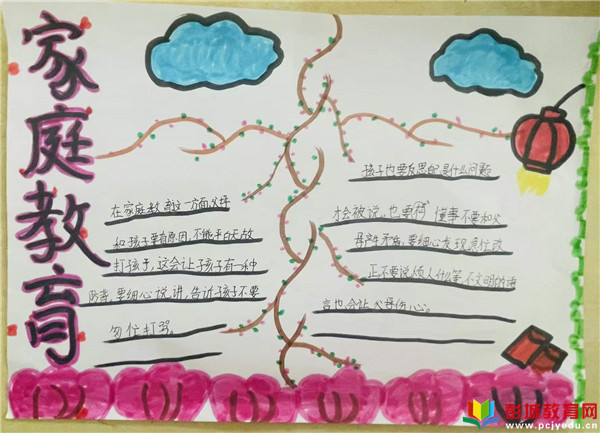 家庭教育
在家庭教育这一方面父母
和孩子要有原因,不能平白无故
打孩子,这会让孩子有一种
要细心说讲,告诉孩子不要
打骂。
孩子也要反思自己是什么问题
才会被说,也要懂事不要和父
母产生矛盾,要细心发现责任改
正不要说烦人什么等不文明的语
言也会让父母伤心。
彭城教育网
www.pcjyedu.cn